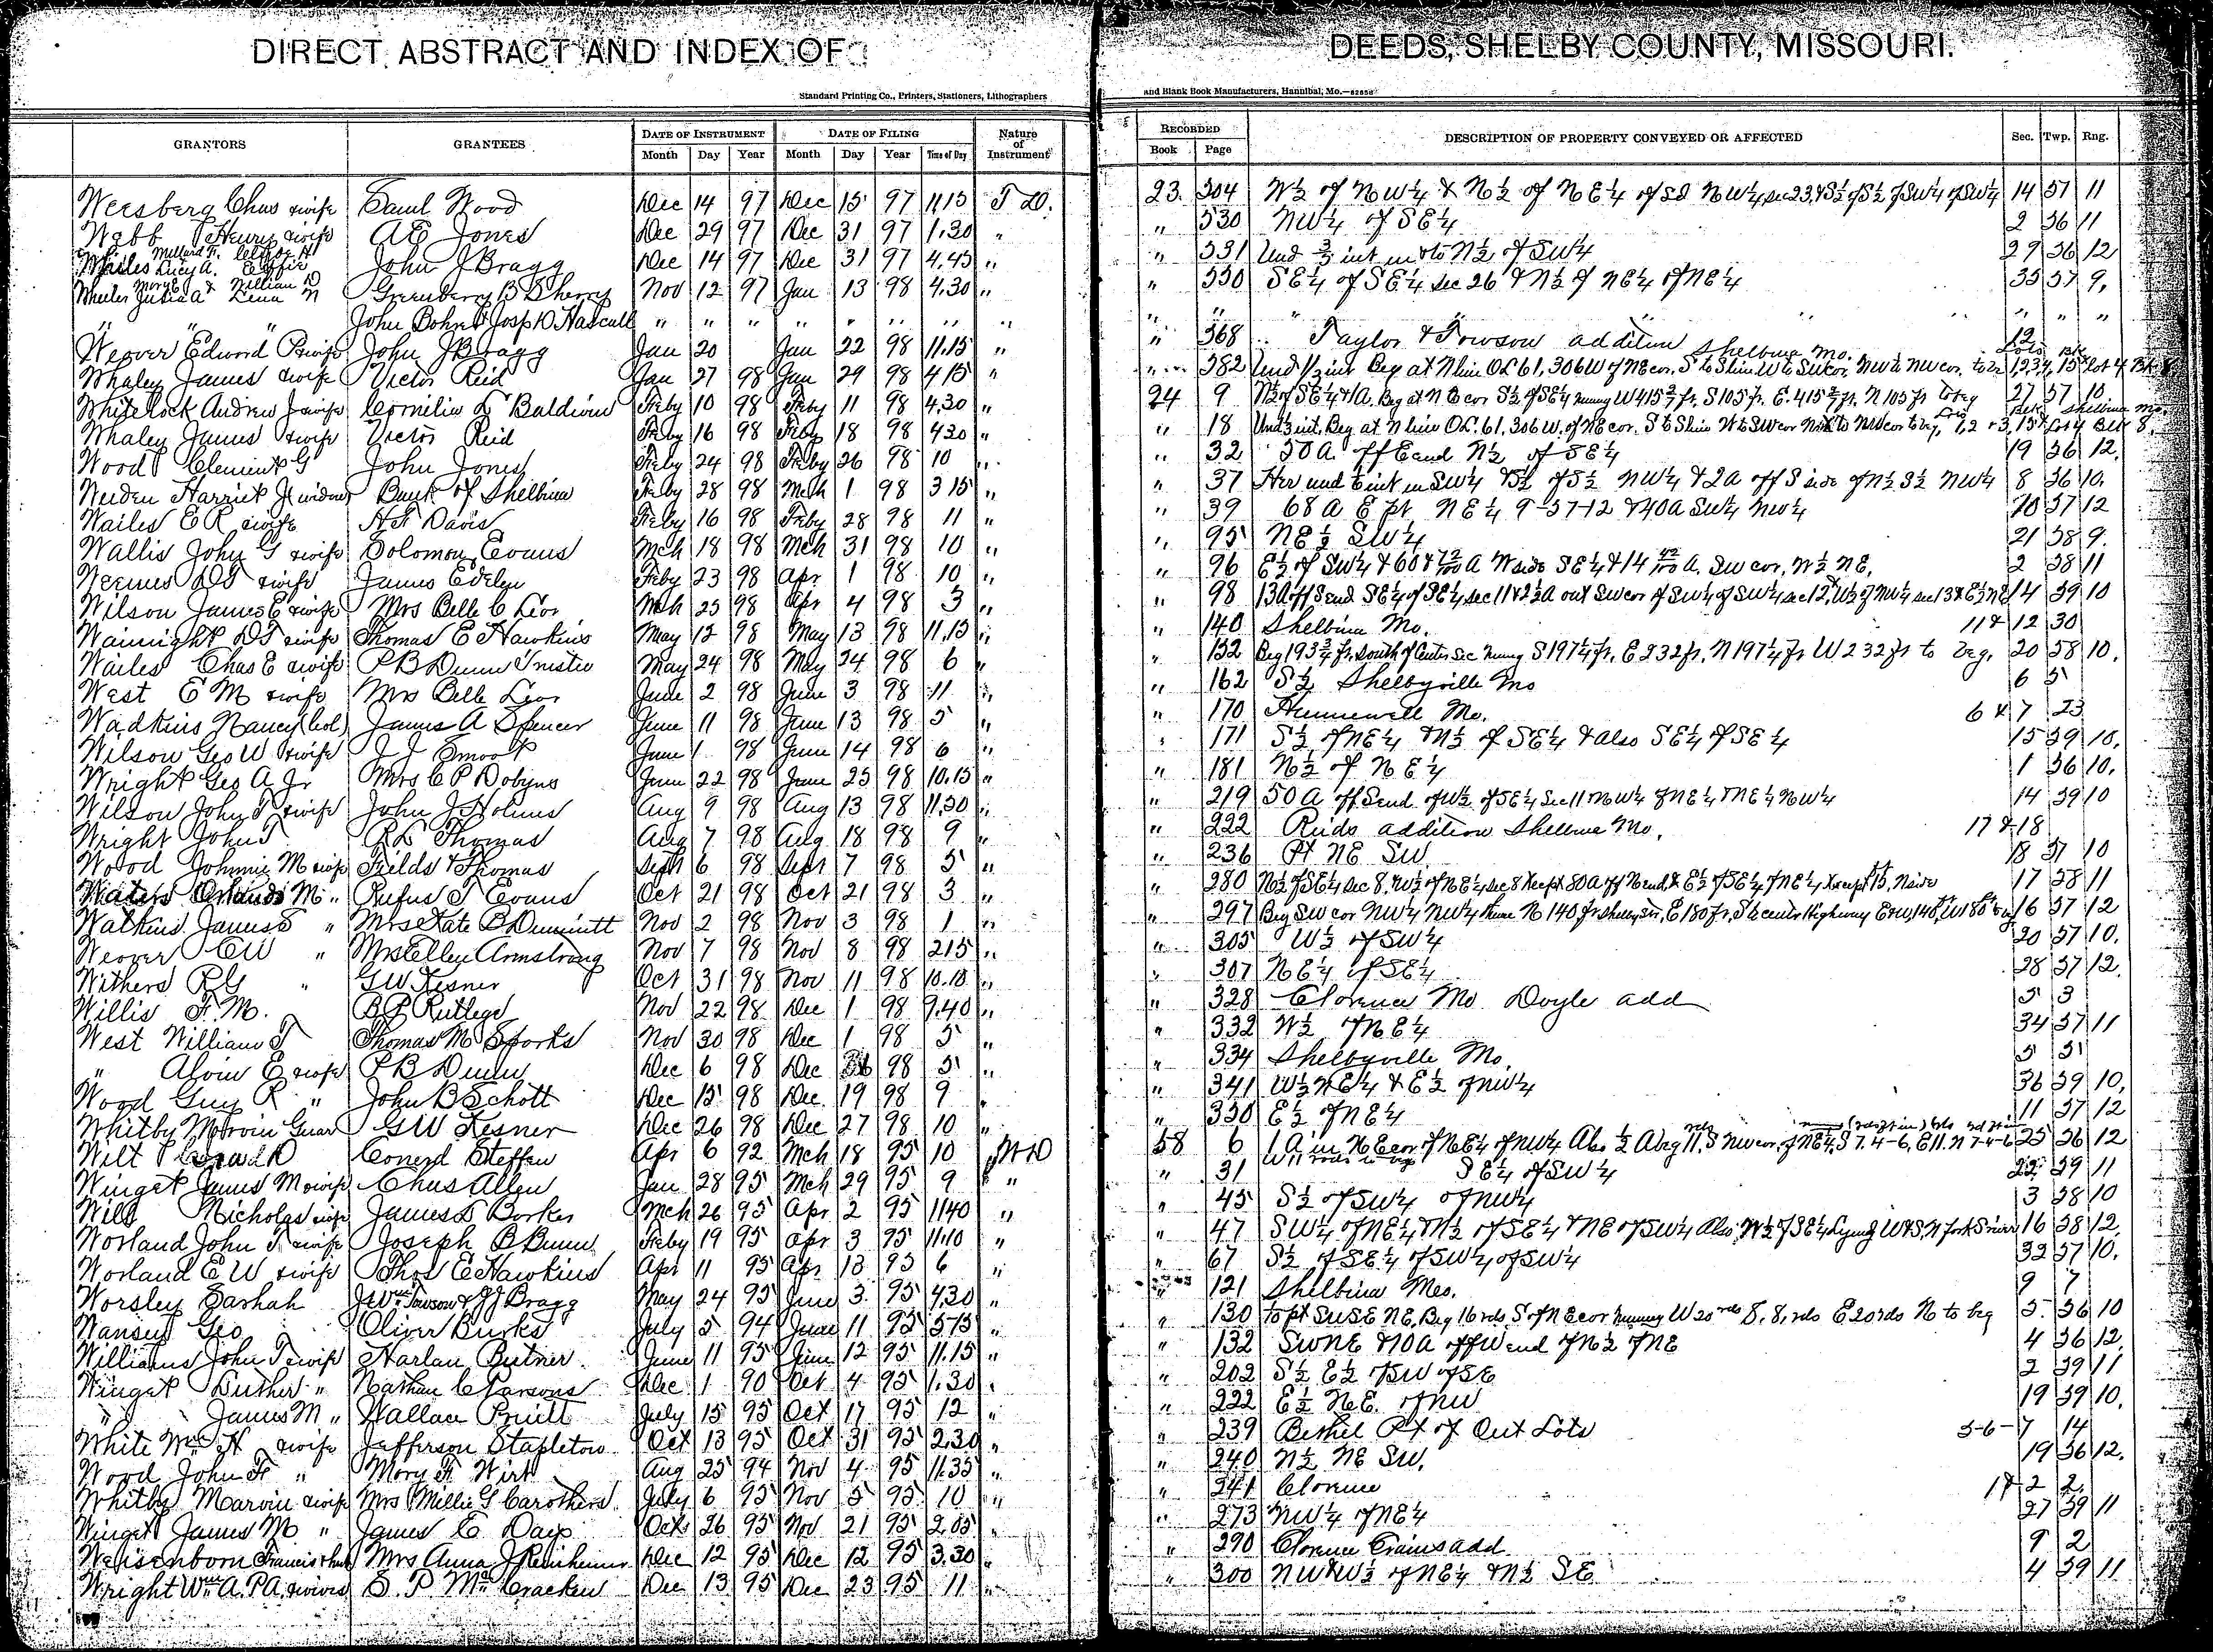 DIRECT ABSTRACT AND INDEX OF DEEDS, SHELBY COUNTY, MISSOURI.
Standard Printing Co., Printers, Stationers, Lithographers and Blank Book Manufacturers, Hannibal, Mo.
GRANTORS GRANTEES DATE OF INSTRUMENT DATE OF FILING Nature of Instrument RECORDED DESCRIPTION OF PROPERTY CONVEYED OR AFFECTED Sec. Twp. Rng.
Month Day Year Month Day Year Time of Day Book Page
Weesberg Chas & wife Saml Wood Dec 14 97 Dec 15 97 11,15 T D. 23 304 W½ of NW¼ & N½ of NE¼ of Sd NW¼ sec 23, & S½ of S½ of SW¼ of SW¼ 14 57 11
Webb Henry & wife A E Jones Dec 29 97 Dec 31 97 1.30 " " 330 NW¼ of SE¼ 2 56 11
Wailes Lucy A. John J Bragg Dec 14 97 Dec 31 97 4.45 " " 331 Und int in & to N½ of SW¼ 29 56 12
Wheeler Julia A Lena N Greenberry B Sherry Nov 12 97 Jan 13 98 4.30 " " 350 SE¼ of SE¼ sec 26 & N½ of NE¼ of NE¼ 35 57 9.
" " " John Bohrer & Josp D Hascall " " " " " " " " " " " " " "
Weover Edward P & wife John J Bragg Jan 20 Jan 22 98 11.15 " " 368 Taylor & Towson addition Shelbina Mo. 12
Whaley James & wife Victor Reid Jan 27 98 Jan 29 98 4 15 " " 382 Und ½ int Beg at N line OL 61, 306 W of NE cor, S to S line W to SW cor, N to NW cor,
Whitelock Andrew J & wife Cornelius L Baldwin Feby 10 98 Feby 11 98 4.30 " 24 9 N½ of SE¼ & 1A. Beg at NE cor S½ of SE¼ runng W 415 ft, S 105 ft. E. 415 ft. N 105 ft to beg 27 57 10
Whaley James & wife Victor Reid Feby 16 98 Feby 18 98 4 30 " " 18 Und ½ int, Beg at N line OL. 61, 306 W. of NE cor. S to S line W to SW cor
Wood Clement G John Jones Feby 24 98 Feby 26 98 10 " " 32 50 A off E end N½ of SE¼ 19 56 12.
Weeden Harriet J widow Bank of Shelbina Feby 28 98 Mch 1 98 3 15 " " 37 Her und int in SW¼ & S½ of S½ NW¼ & 2 a off S side of N½ S½ NW¼ 8 56 10.
Wailes E R & wife H F Davis Feby 16 98 Feby 28 98 11 " " 39 68 A E pt NE¼ 9-57-12 & 40 A SW¼ NW¼ 10 57 12
Wallis John G & wife Solomon Evans Mch 18 98 Mch 31 98 10 " " 95 NE½ SW¼ 21 58 9.
Weems D T & wife James Edelyn Feby 23 98 Apr 1 98 10 " " 96 E½ of SW¼ & 60 A W side SE¼ & 14 A. SW cor, W½ NE, 2 58 11
Wilson James E & wife Mrs Belle C Leor Mch 25 98 Apr 4 98 3 " " 98 13A off S end SE¼ of SE¼ sec 11 & 2½ A out SW cor of SW¼ of SW¼ sec 12, W½ of NW¼ sec 13 & E½ NE 14 59 10
Wainright D T & wife Thomas E Hawkins May 12 98 May 13 98 11.15 " " 140 Shelbina Mo. 11 & 12 30
Wailes Chas E & wife P B Dunn Trustee May 24 98 May 24 98 6 " " 152 Beg 193¾ ft south of Center Sec runng S 197¼ ft, E 232 ft, N 197¼ ft W 232 ft to beg, 20 58 10.
West E M & wife Mrs Belle Leor June 2 98 June 3 98 11 " " 162 S½ Shelbyville Mo 6 5
Wadkins Nancy (col) James A Spencer June 11 98 June 13 98 5 " " 170 Hunnewell Mo. 6 & 7 23
Wilson Geo W & wife J J Smoot June 1 98 June 14 98 6 " " 171 S½ of NE¼ & N½ of SE¼ & also SE¼ of SE¼ 15 59 10.
Wright Geo A Jr Mrs C P Dobyns June 22 98 June 25 98 10.15 " " 181 N½ of NE¼ 1 56 10.
Wilson John T & wife John J Holmes Aug 9 98 Aug 13 98 11.30 " " 219 50 A off S end of W½ of SE¼ Sec 11 NW¼ of NE¼ & NE¼ NW¼ 14 59 10
Wright John T R L Thomas Aug 7 98 Aug 18 98 9 " " 222 Reids addition Shelbina Mo. 17 & 18
Wood Johnnie M & wife Fields & Thomas Sept 6 98 Sept 7 98 5 " " 236 Pt NE SW 18 57 10
Waters M " Rufus T Evans Oct 21 98 Oct 21 98 3 " " 280 N½ of SE¼ sec 8, W½ of NE¼ sec 8 Xcept 80 A off N end, & E½ of SE¼ of NE¼ Xcept 15 N side 17 58 11
Watkins James S " Mrs Kate B Dimmitt Nov 2 98 Nov 3 98 1 " " 297 Beg SW cor NW¼ NW¼ thence N 140 ft Shelby St, E 180 ft, S to center Highway 16 57 12
Weover C W " Mrs Ellen Armstrong Nov 7 98 Nov 8 98 2 15 " " 305 W½ of SW¼ 20 57 10.
Withers R G " G W Kesner Oct 31 98 Nov 11 98 10.10 " " 307 NE¼ of SE¼ 28 57 12.
Willis F. M. B P Rutlege Nov 22 98 Dec 1 98 9.40 " " 328 Clarence Mo Doyle add 5 3
West William T Thomas M Sparks Nov 30 98 Dec 1 98 5 " " 332 W½ of NE¼ 34 57 11
" Alvin E & wife P B Dunn Dec 6 98 Dec 98 5 " " 334 Shelbyville Mo. 5 51
Wood Guy R " John B Schott Dec 15 98 Dec 19 98 9 " " 341 W½ NE¼ & E½ of NW¼ 36 59 10,
Whitby Marvin Guar G W Kesner Dec 26 98 Dec 27 98 10 " " 350 E½ of NE¼ 11 57 12
Wilt D Conerd Steffen Apr 6 92 Mch 18 95 10 W D 58 6 1 A in NE cor of NE¼ of NW¼ Also ½ A beg 11 S NW cor of NE¼, S 7. 4-6, E 11. N 7-4-6 25 56 12
Winget James M & wife Chas Allen Jan 28 95 Mch 29 95 9 " " 31 SE¼ of SW¼ 22 59 11
Will Nicholas & wife James L Barker Mch 26 95 Apr 2 95 11 40 " " 45 S½ of SW¼ of NW¼ 3 58 10
Worland John T & wife Joseph B Bunn Feby 19 95 Apr 3 95 11.10 " " 47 SW¼ of NE¼ & N½ of SE¼ & NE of SW¼ Also, W½ of SE¼ Lying W & S, N fork S river 16 58 12
Worland E W & wife Thos E Hawkins Apr 11 95 Apr 13 95 6 " " 67 S½ of SE¼ of SW¼ of SW¼ 32 57 10.
Worsley Sarhah J Wm Towson & J J Bragg May 24 95 June 3 95 4.30 " " 121 Shelbina Mo. 9 7
Wansey Geo Oliver Burks July 5 94 June 11 95 5 15 " " 130 To pt SW SE NE, Beg 16 rds S of NE cor runng W 20 rds S. 8, rds E 20 rds N to beg 5 56 10
Williams John T & wife Harlan Butner June 11 95 June 12 95 11.15 " " 132 SW NE & 10 A off W end of N½ of NE 4 56 12.
Winget Luther " Nathan C Parsons Dec 1 90 Oct 4 95 1.30 " " 202 S½ E½ of SW of SE 2 59 11
" James M " Wallace Pruitt July 15 95 Oct 17 95 12 " " 222 E½ NE. of NW 19 59 10.
White Wm H & wife Jefferson Stapleton Oct 13 95 Oct 31 95 2.30 " " 239 Bethel Pt of Out Lots 5-6-7 14
Wood John F " Mary F Wirt Aug 25 94 Nov 4 95 11.35 " " 240 N½ NE SW. 19 56 12.
Whitby Marvin & wife Mrs Millie G Carothers July 6 95 Nov 5 95 10 " " 241 Clarence 1 & 2 2.
Winget James M " James E Days Oct 26 95 Nov 21 95 2 05 " " 273 NW¼ of NE¼ 27 59 11
Weisenborn Francis & hus Mrs Anna J Reinheimer Dec 12 95 Dec 12 95 3.30 " " 290 Clarence Crains add 9 2
Wright Wm A. P A. & wives S. P. McCracken Dec 13 95 Dec 23 95 11 " " 300 NW & W½ of NE¼ & N½ SE 4 59 11